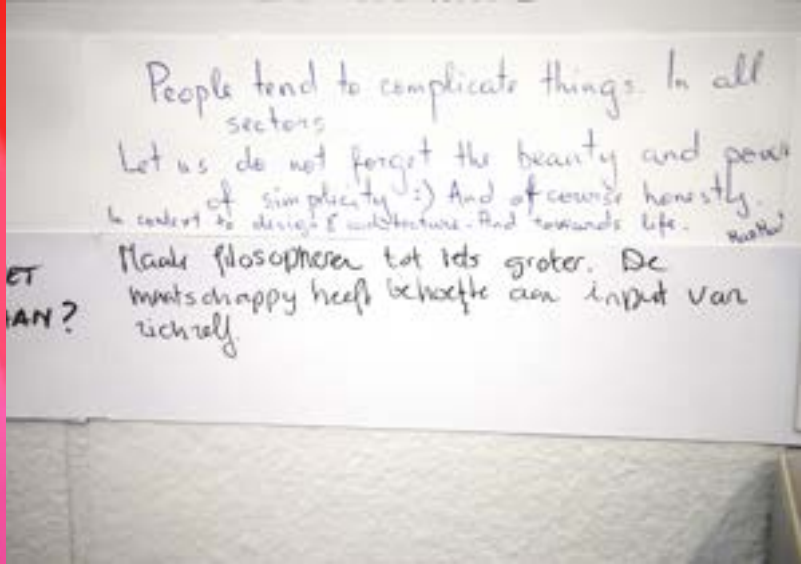 People tend to complicate things. In all
sectors
Let us do not forget the beauty and power
of simplicity :) And of course honestly.
In context to design & architecture. And towards life.
ET
AAN?
Maak filosopheren tot iets groter. De
maatschappy heeft behoefte aan input van
zichzelf.